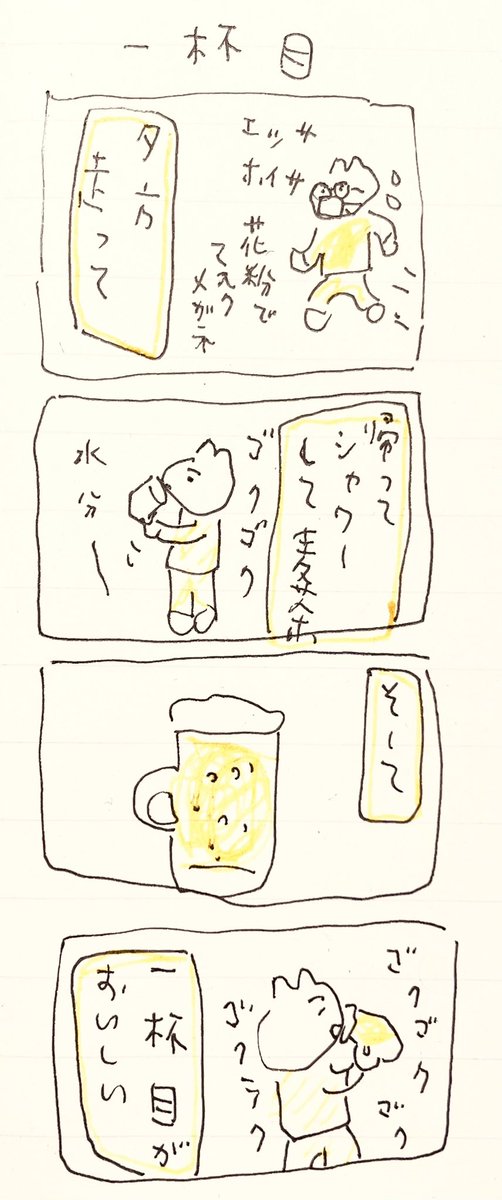 一杯目
エッサ
ホイサ
花粉で
マスク
メガネ
夕方
走って
帰って
シャワー
して麦茶
ゴクゴク
水分ー
そして
ゴクゴク
ゴク
ゴクラク
一杯目が
おいしい